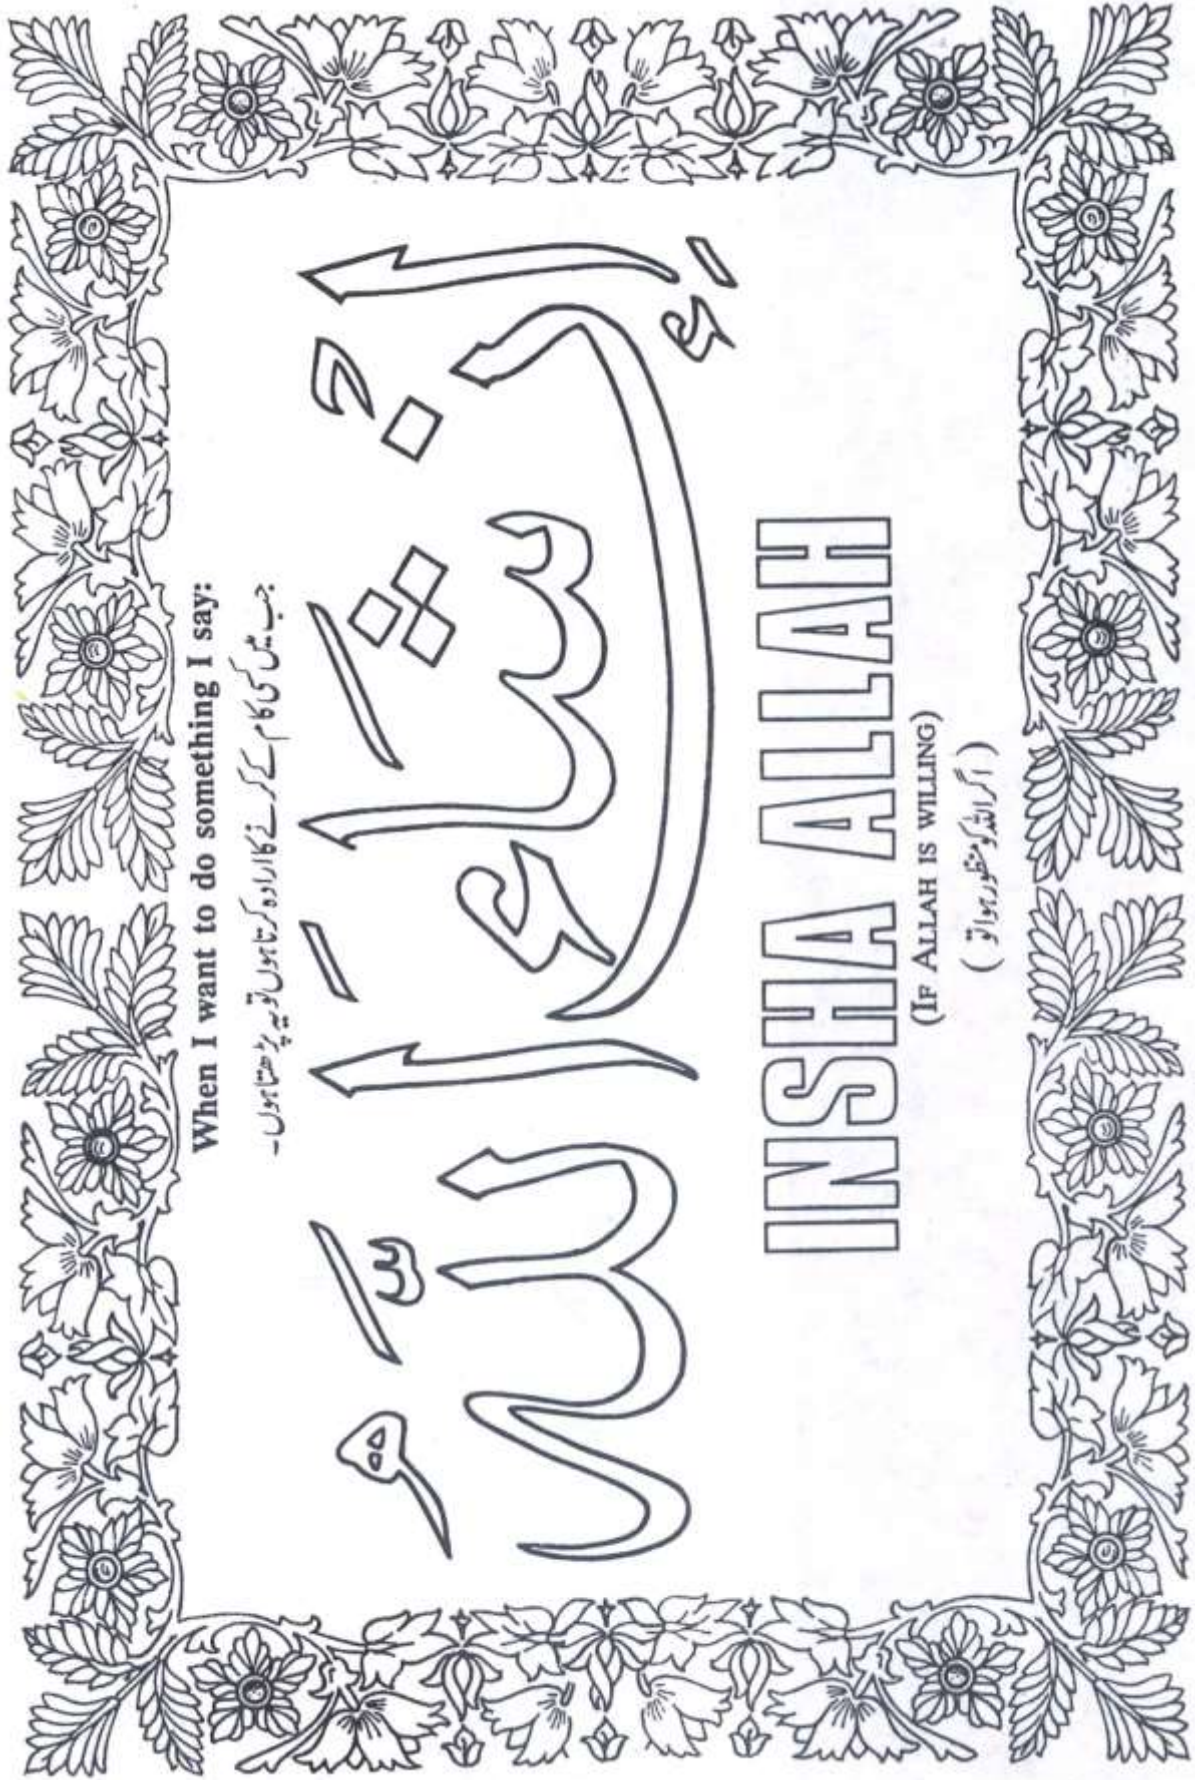 When I want to do something I say:
جب میں کسی کام کے کرنے کا ارادہ کرتا ہوں تو یہ پڑھتا ہوں۔
إِنْ شَاءَ اللّٰهُ
INSHA ALLAH
(IF ALLAH IS WILLING)
( اگر اللہ کو منظور ہوا تو )